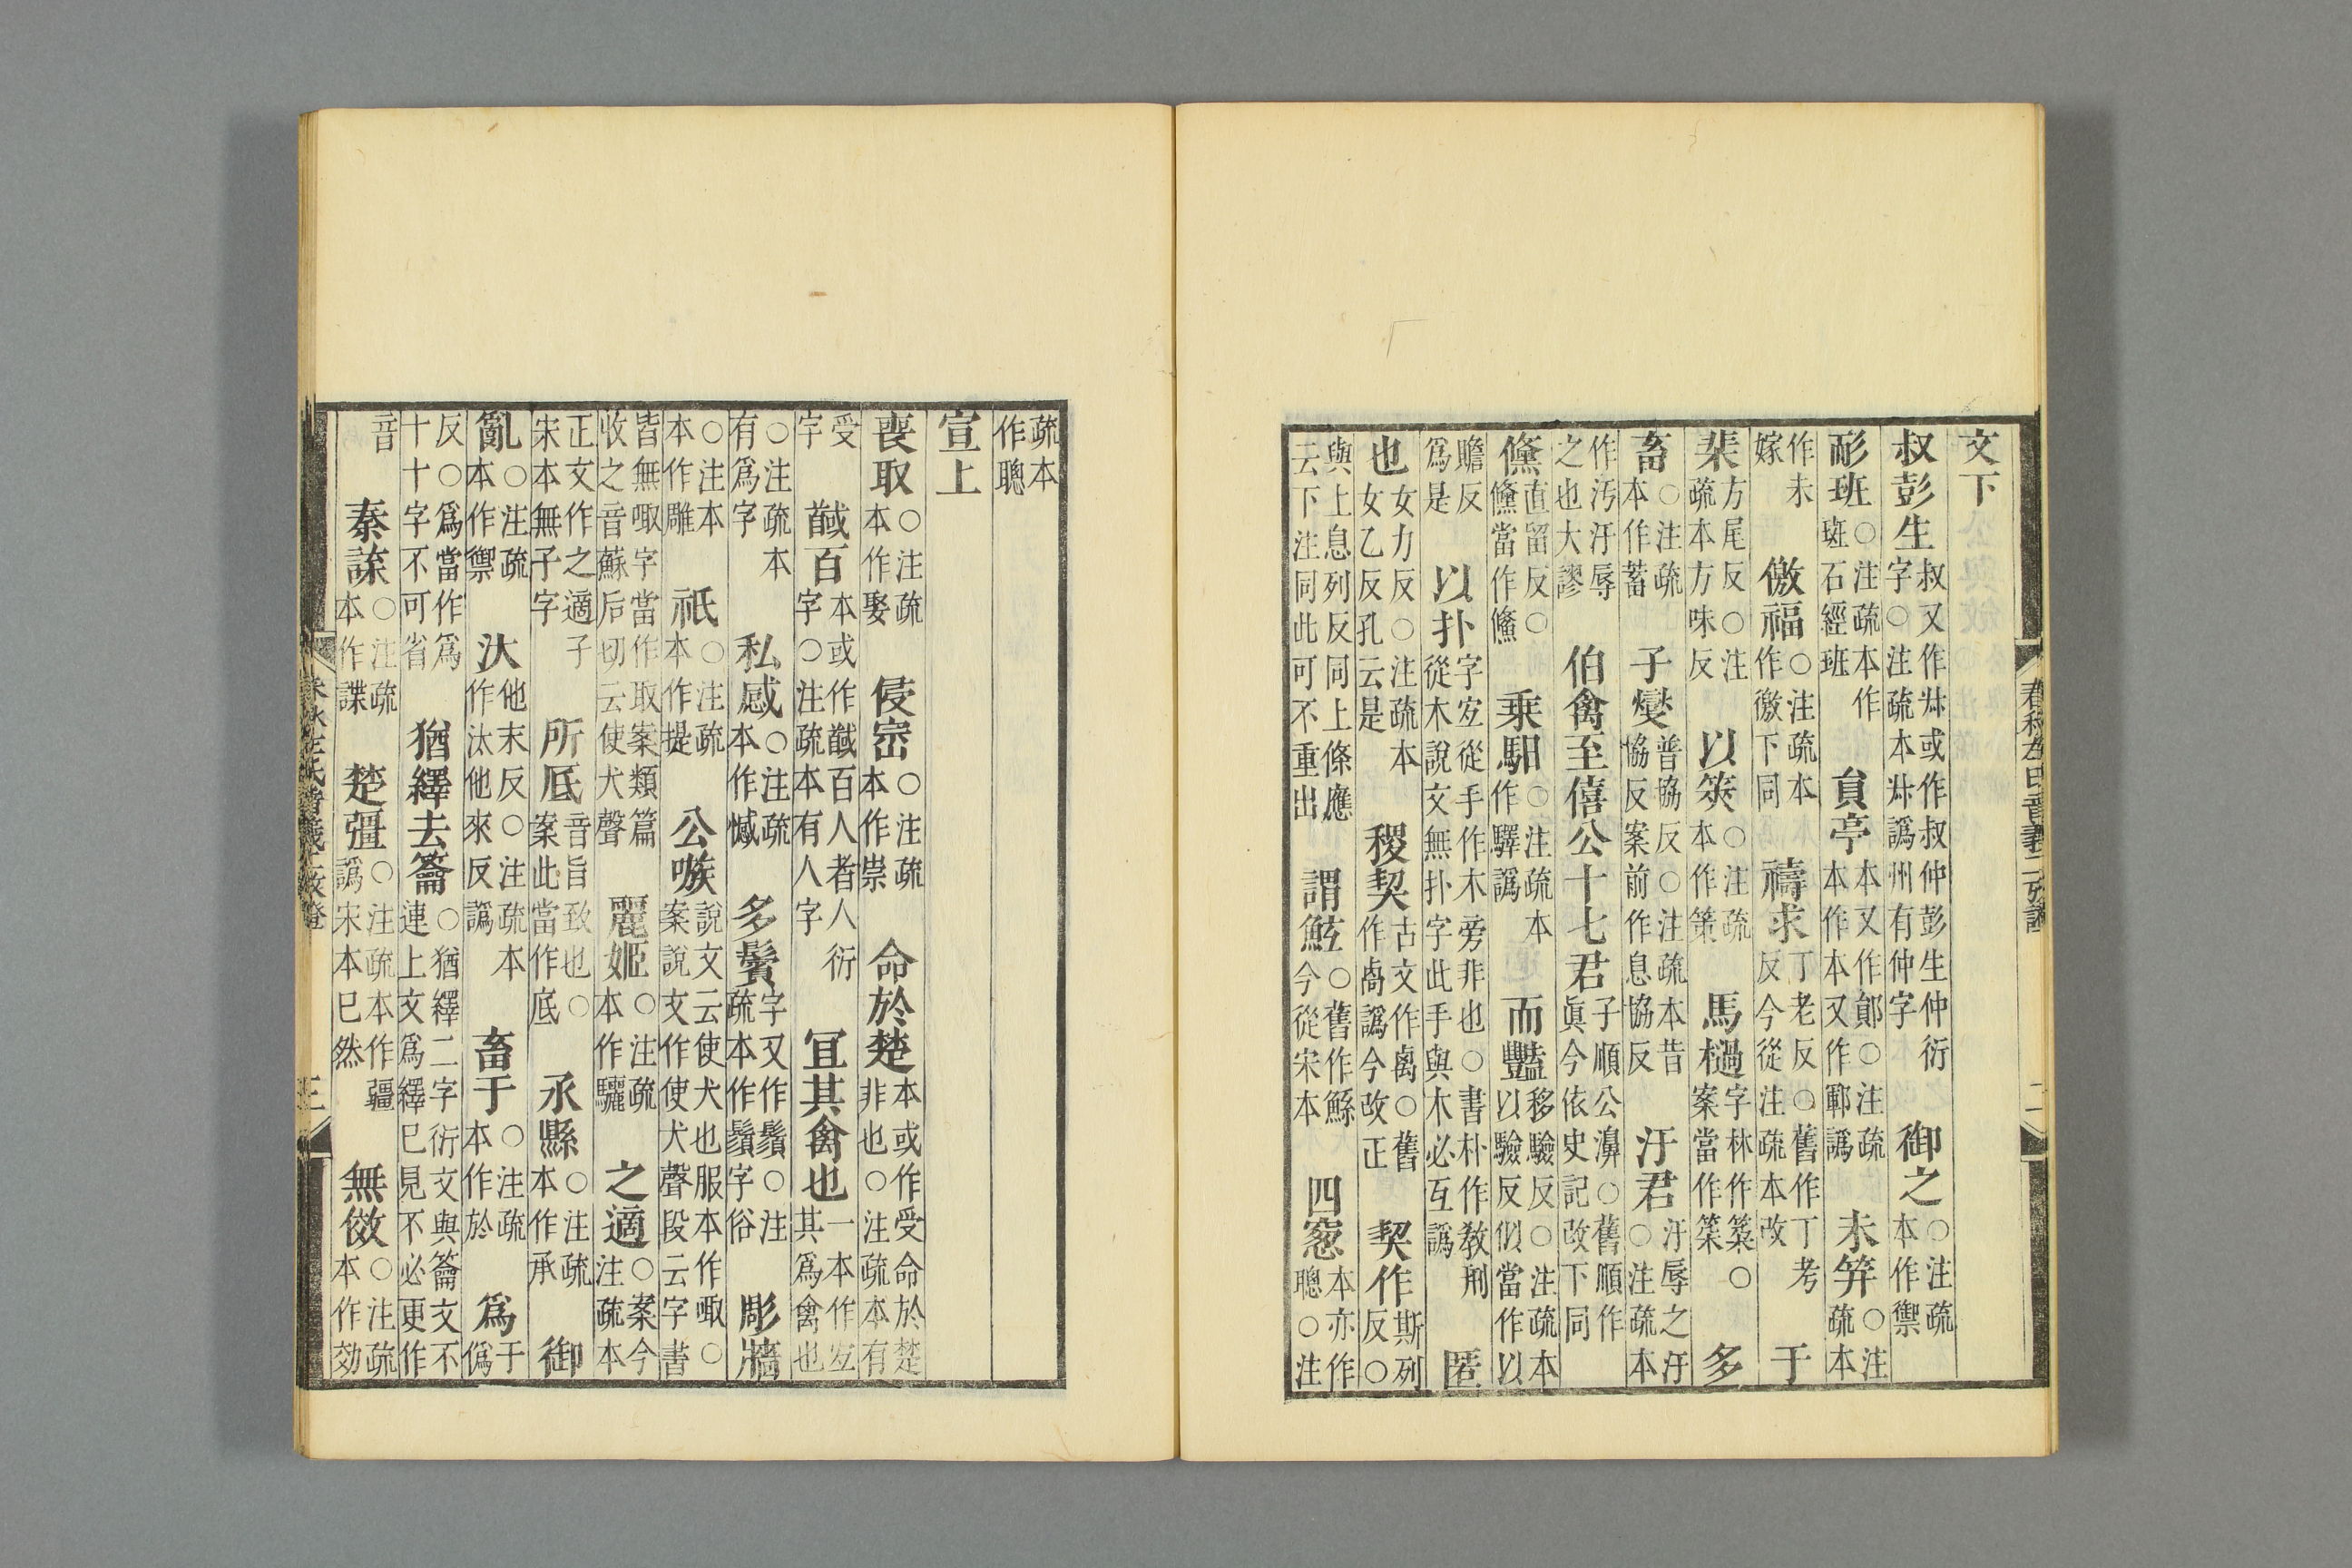 文下
叔彭生叔又作尗或作叔仲彭生仲衍字○注疏本尗譌州有仲字 御之○注疏本作禦
耏班○注疏本作斑石經班 貟亭本又作鄖○注疏本作本又作鄆譌 未笄○注疏本
作未嫁 儌福○注疏本作徼下同 禱求丁老反○舊作丁考反今從注疏本改 于
棐方尾反○注疏本方味反 以筴○注疏本作策 馬檛字林作○案當作 多
畜○注疏本作蓄 子燮普協反○注疏本昔協反案前作息協反 汙君汙辱之汙○注疏本
作汚汙辱之也大謬 伯禽至僖公十七君子順公濞○舊順作眞今依史記改下同
儵直留反○儵當作鯈 乗馹○注疏本作驛譌 而豔移驗反○注疏本以驗反似當作以
贍反爲是 以扑字宐從手作木旁非也○書朴作敎刑從木說文無扑字此手與木必互譌 匿
也女力反○注疏本女乙反孔云是 稷契古文作禼○舊作卨譌今改正 契作斯列反○
與上息列反同上條應云下注同此可不重出 謂鮌○舊作鯀今從宋本 四窓本亦作聰○注
春秋左氏音義二攷證 二
疏本作聰
宣上
喪取○注疏本作娶 侵崈○注疏本作崇 命於楚本或作受命於楚非也○注疏本有
受字 馘百本或作馘百人者人衍字○注疏本有人字 冝其禽也一本作宐其爲禽也
○注疏本有爲字 私感○注疏本作憾 多鬢字又作鬚○注疏本作鬚字俗 彫牆
○注本本作雕 祇○注疏本作提 公嗾說文云使犬也服本作㖩○案說文作使犬聲段云字書
皆無㖩字當作取案類篇收之音蘇后切云使犬聲 麗姬○注疏本作驪 之適○案今注疏本
正文作之適子宋本無子字 所厎音旨致也○案此當作底 承縣○注疏本作承 御
亂○注疏本作禦 汏他末反○注疏本作汰他來反譌 畜于○注疏本作於 爲于僞
反○爲當作爲十十字不可省 猶繹去籥○猶繹二字衍文與籥文不連上文爲繹巳見不必更作
音 秦諜○注疏本作諜 楚彊○注疏本作疆譌宋本巳然 無傚○注疏本作効
春秋左氏音義二攷證 三